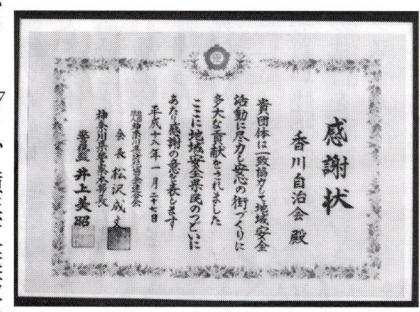 感謝状
香川自治会 殿
貴団体は一致協力して地域安全
活動に尽力し安心の街づくりに
多大な貢献をされました
ここに地域安全県民のつどいに
あたり感謝の意を表します
平成十八年一月二十七日
会長 松沢成文
神奈川県警察本部長
警視監 井上美昭